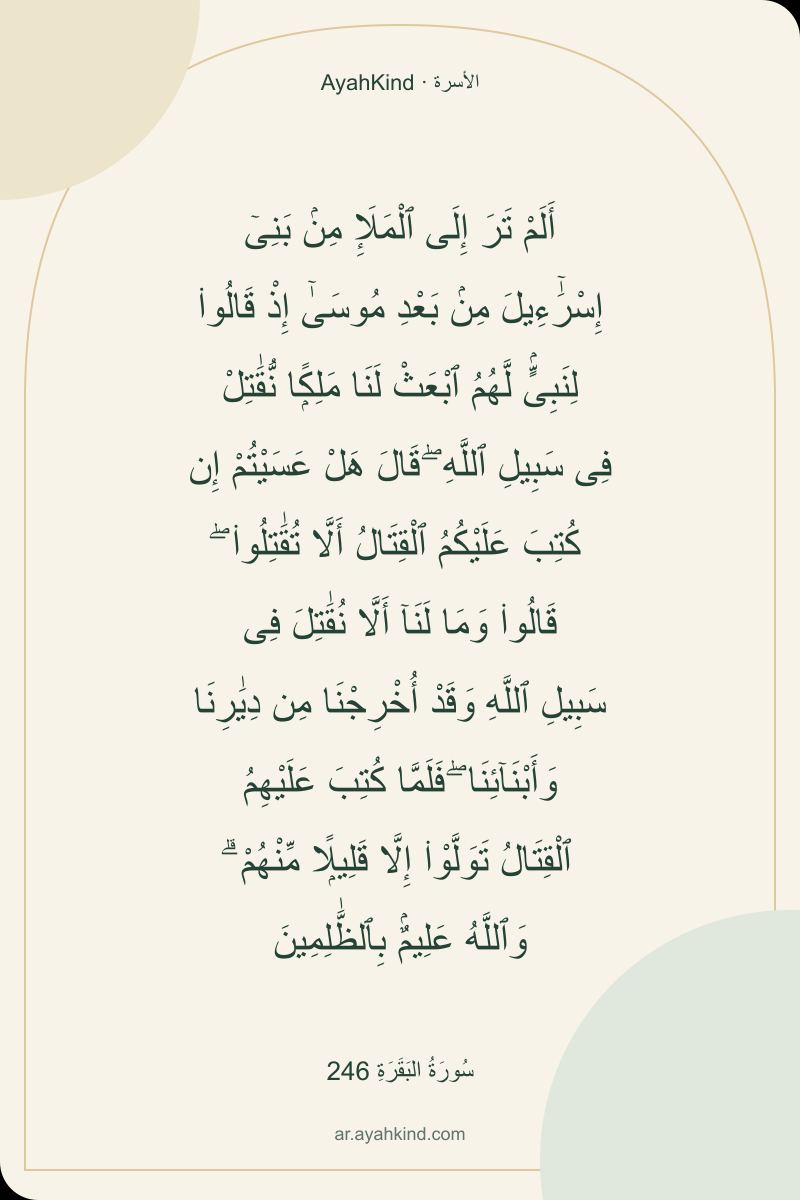 AyahKind · الأسرة
أَلَمْ تَرَ إِلَى ٱلْمَلَإِ مِنۢ بَنِىٓ
إِسْرَٰٓءِيلَ مِنۢ بَعْدِ مُوسَىٰٓ إِذْ قَالُوا۟
لِنَبِىٍّۢ لَّهُمُ ٱبْعَثْ لَنَا مَلِكًۭا نُّقَٰتِلْ
فِى سَبِيلِ ٱللَّهِ ۖ قَالَ هَلْ عَسَيْتُمْ إِن
كُتِبَ عَلَيْكُمُ ٱلْقِتَالُ أَلَّا تُقَٰتِلُوا۟ ۖ
قَالُوا۟ وَمَا لَنَآ أَلَّا نُقَٰتِلَ فِى
سَبِيلِ ٱللَّهِ وَقَدْ أُخْرِجْنَا مِن دِيَٰرِنَا
وَأَبْنَآئِنَا ۖ فَلَمَّا كُتِبَ عَلَيْهِمُ
ٱلْقِتَالُ تَوَلَّوْا۟ إِلَّا قَلِيلًۭا مِّنْهُمْ ۗ
وَٱللَّهُ عَلِيمٌۢ بِٱلظَّٰلِمِينَ
سُورَةُ البَقَرَةِ 246
ar.ayahkind.com